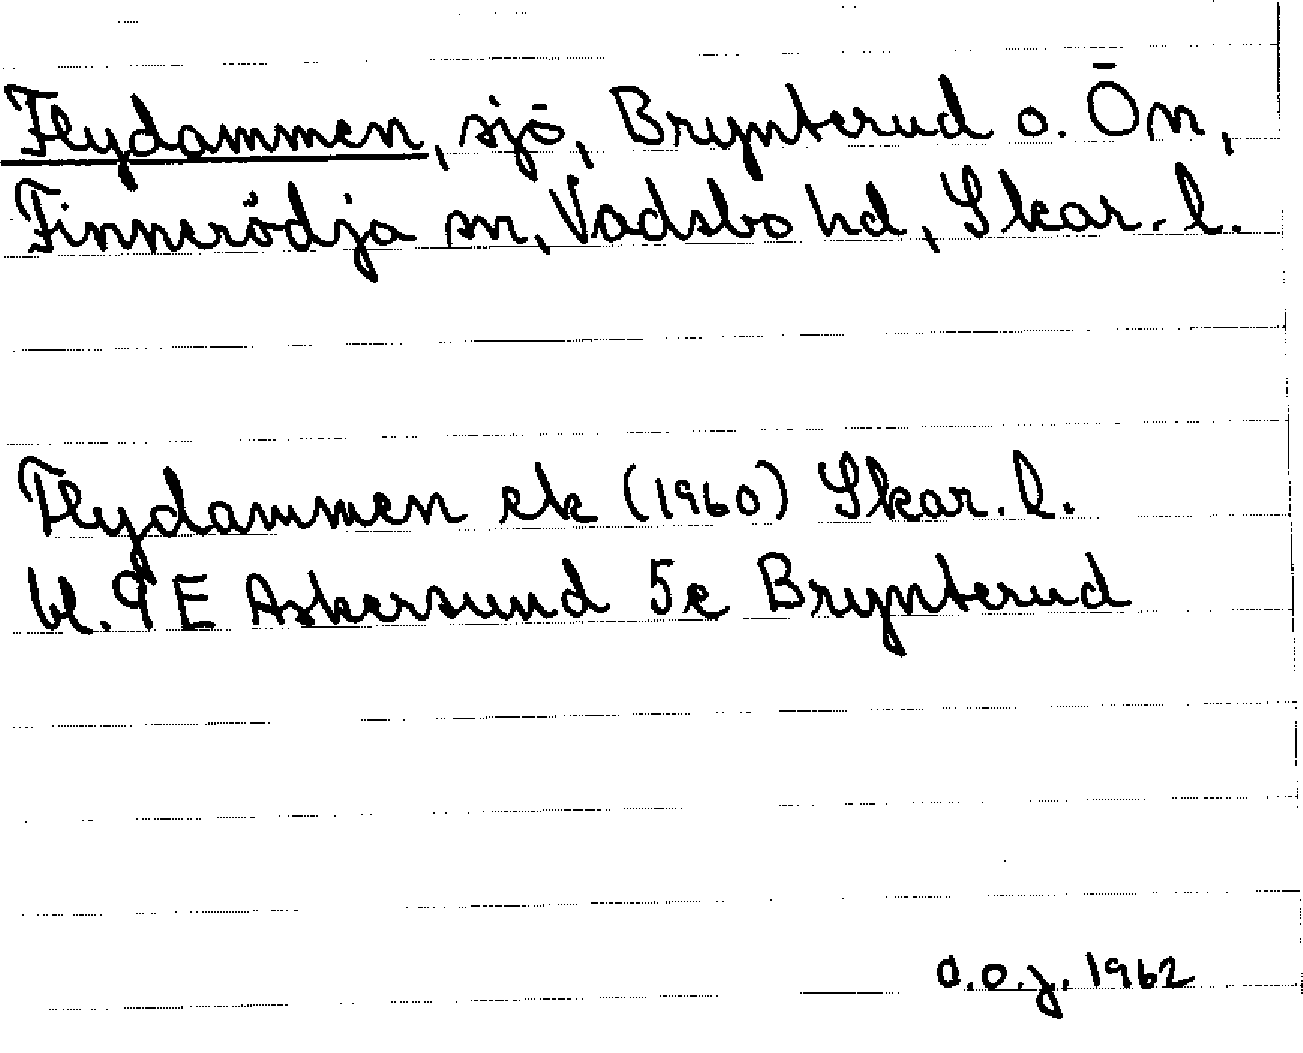 Flydammen, sjö, Brynterud o. Ön,
Finnerödja sn, Vadsbo hd, Skar. l.
Flydammen ek (1960) Skar. l.
bl. 9 E Askersund 5e Brynterud
a.o.j. 1962